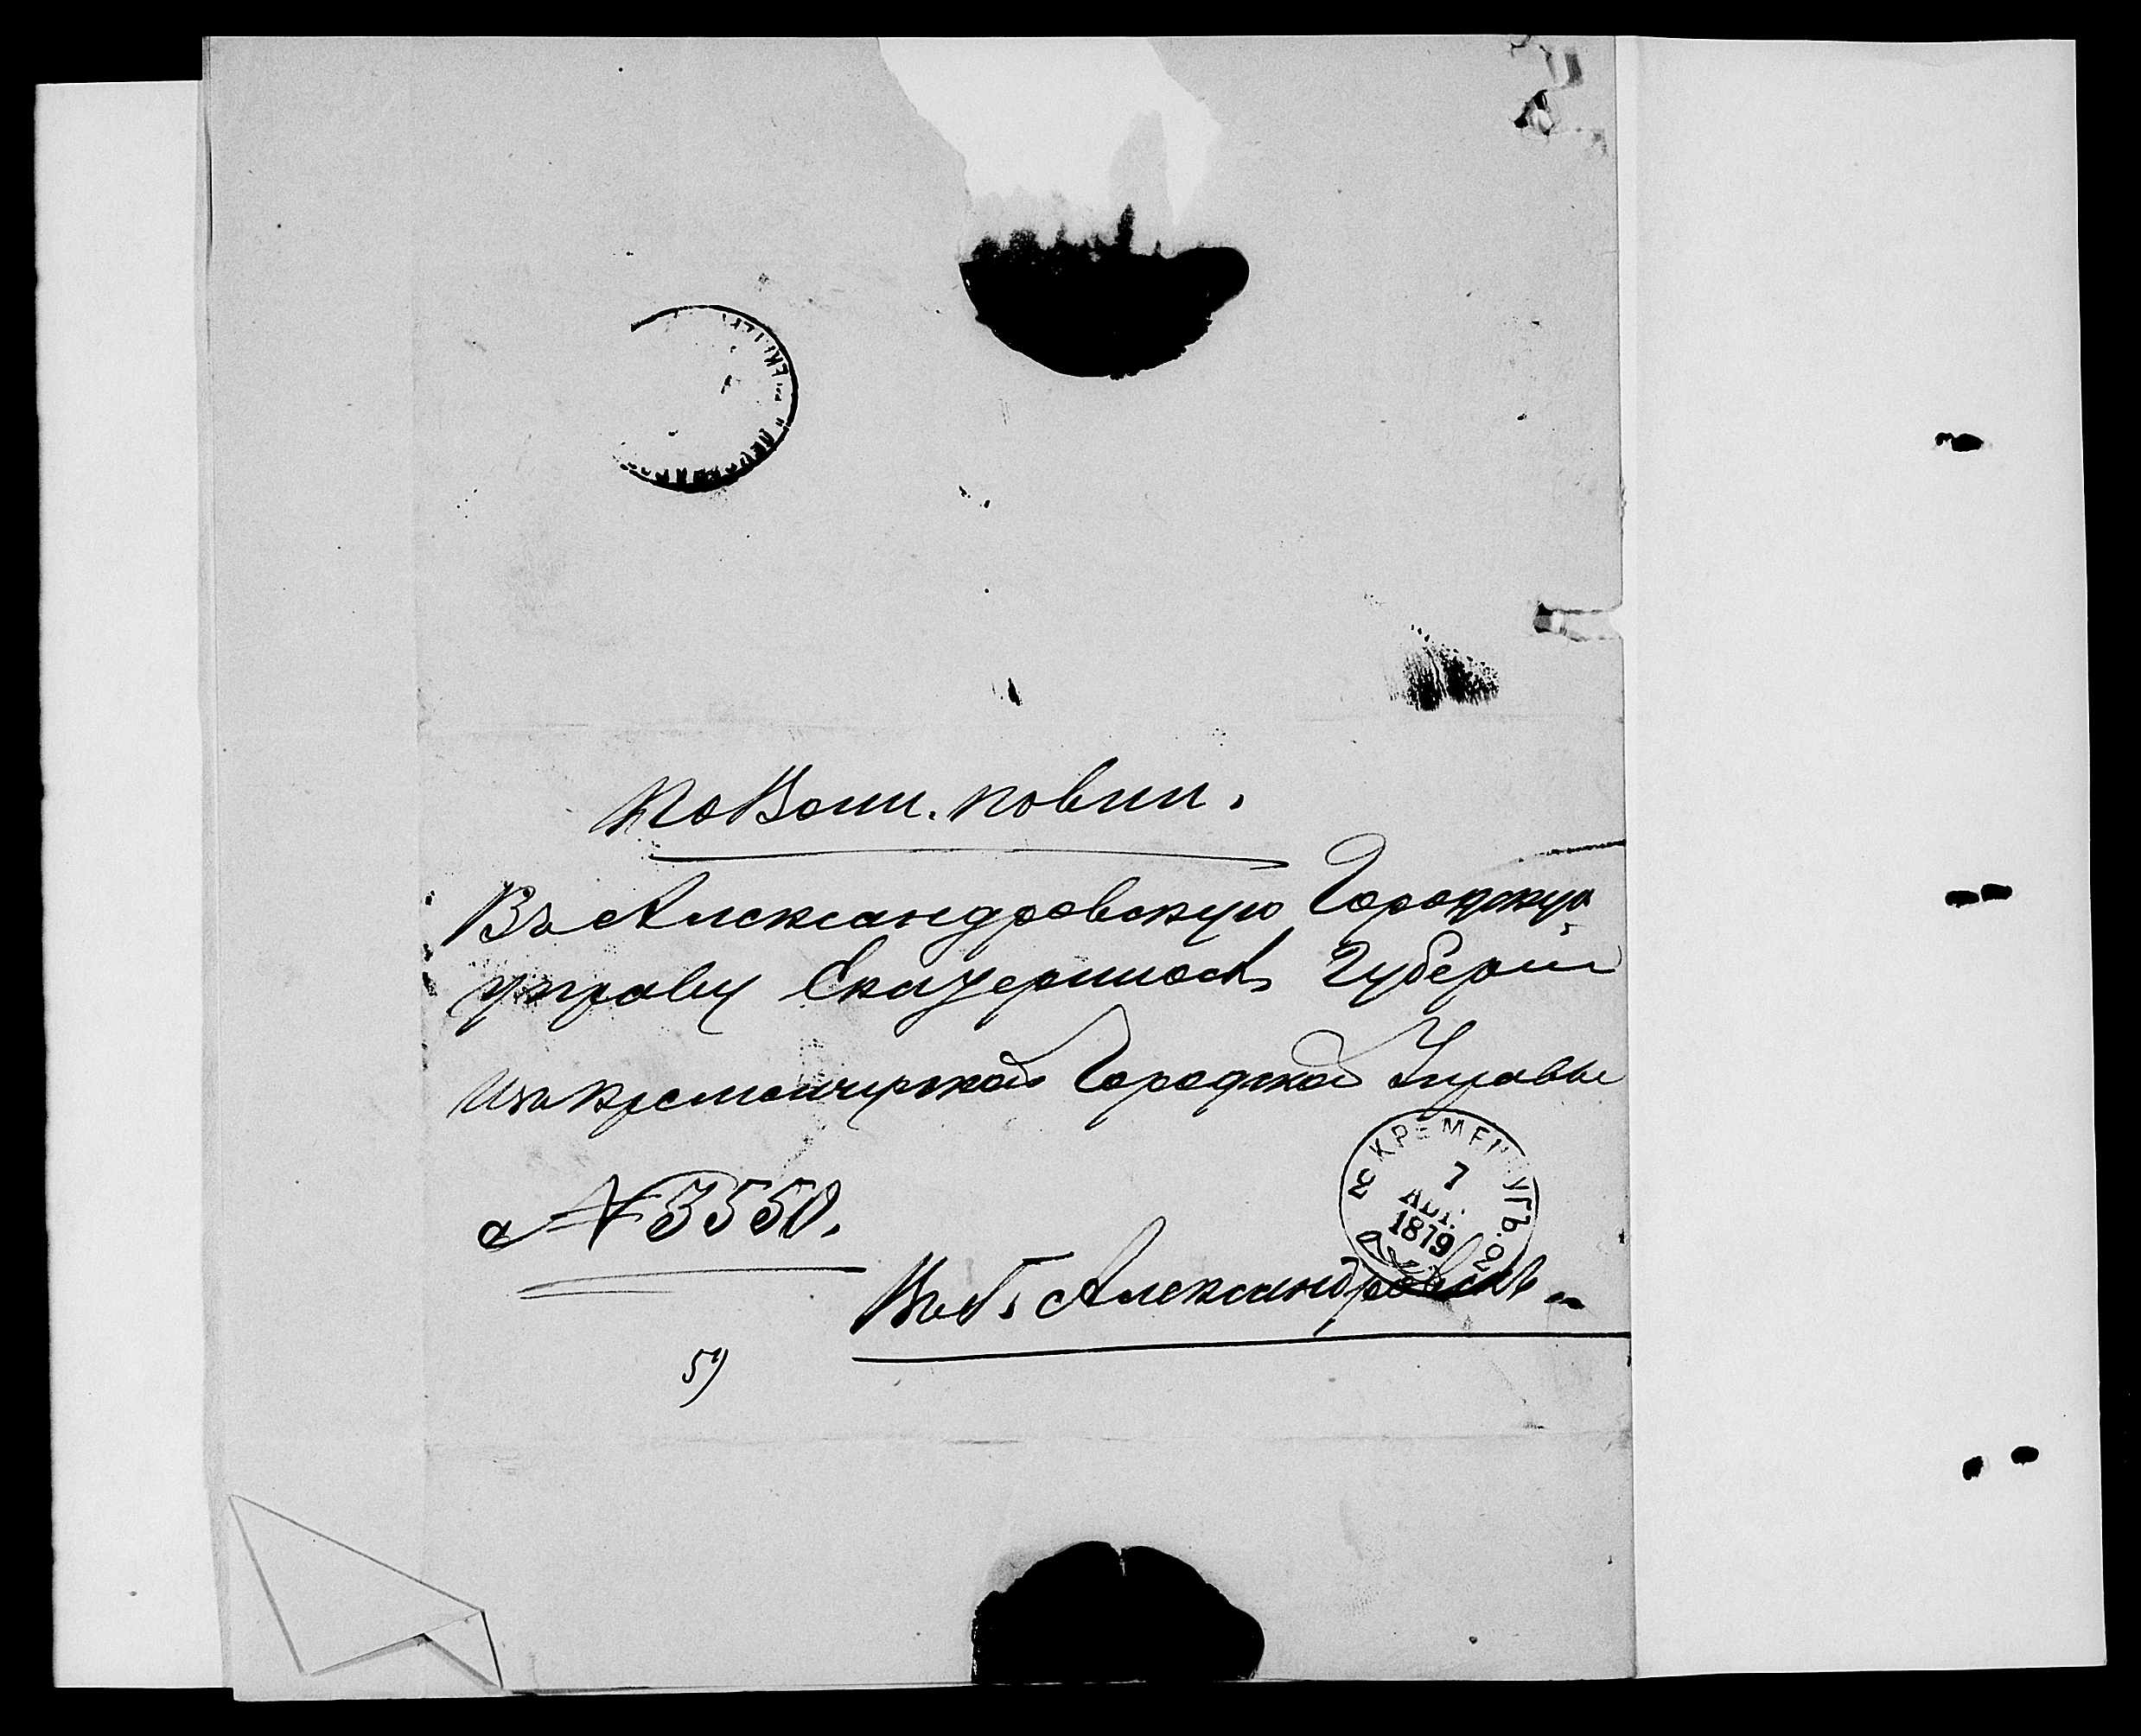 По Воин. повин.
Въ Александровскую Городскую
управу Екатеринос. Губерніи
Изъ Кременчугской Городской Управы
№ 3550.
КРЕМЕНЧУГЪ
7
АВГ.
1879
Въ Г. Александровскъ